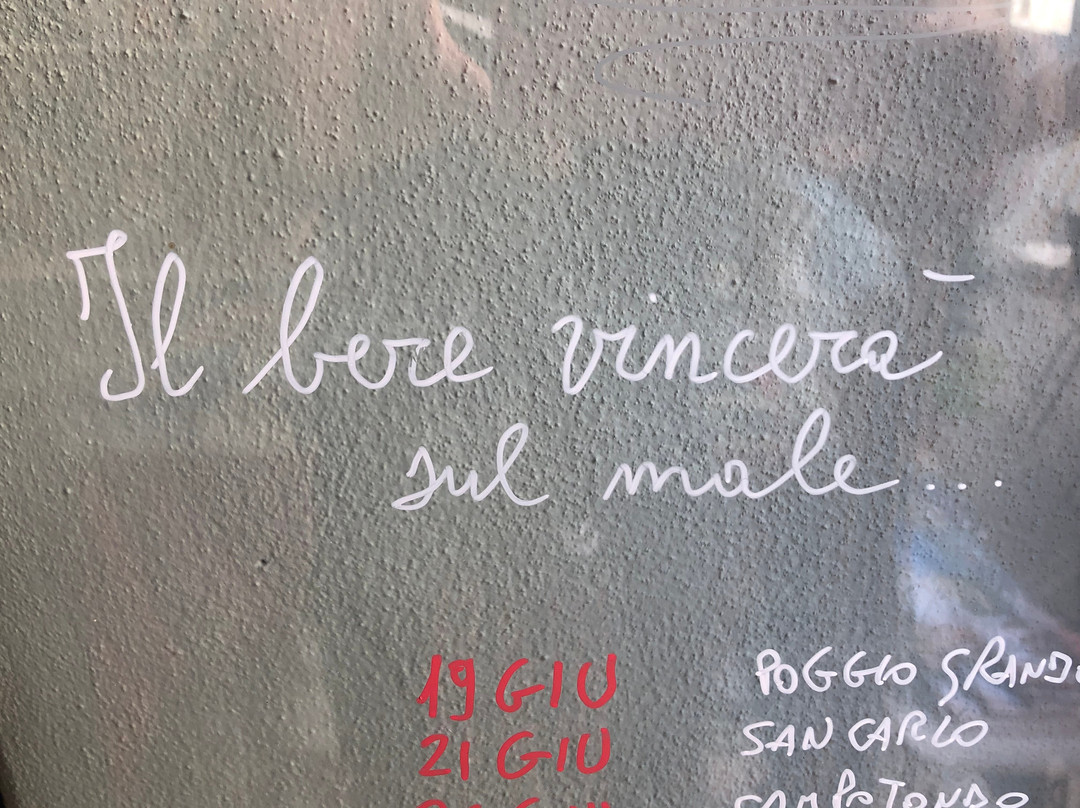 Il bere vincerà
sul male...
19 GIU POGGIO GRANDE
21 GIU SAN CARLO
CAMPOTONDO